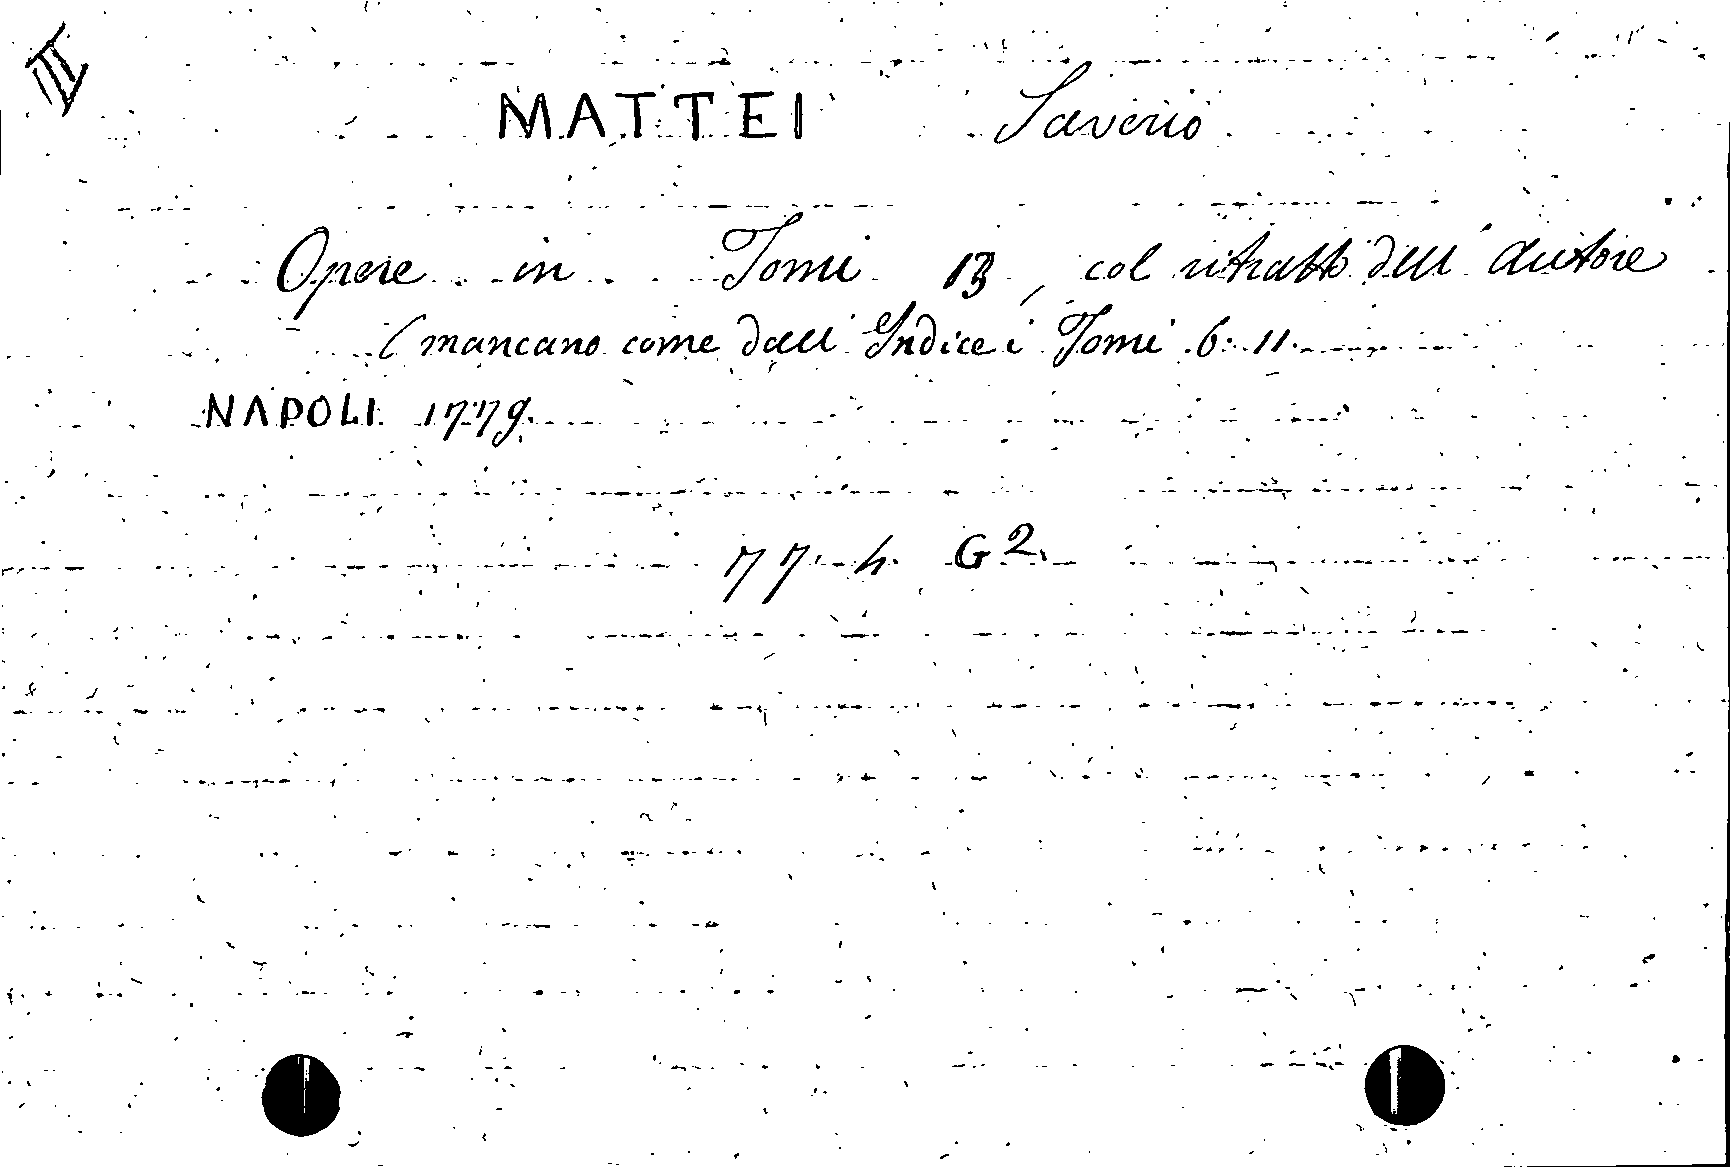 III
MATTEI Saverio
Opere in Tomi 13, col ritratto dell' Autore
(mancano come dall' Indice i Tomi 6. 11.
NAPOLI 1779.
77. h. G 2.